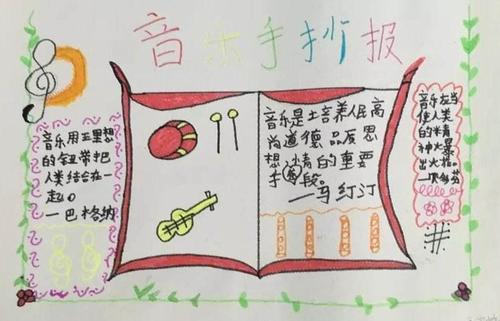 音乐手抄报
音乐用王里想
的纽带把
人类结合在一
起。
—巴·格纳
音乐是土培养倨高
尚道德品质思
想 情的重要
手段。
—马红汀
音乐应当
使人类
的精
神火暴
出火花。
—贝多芬